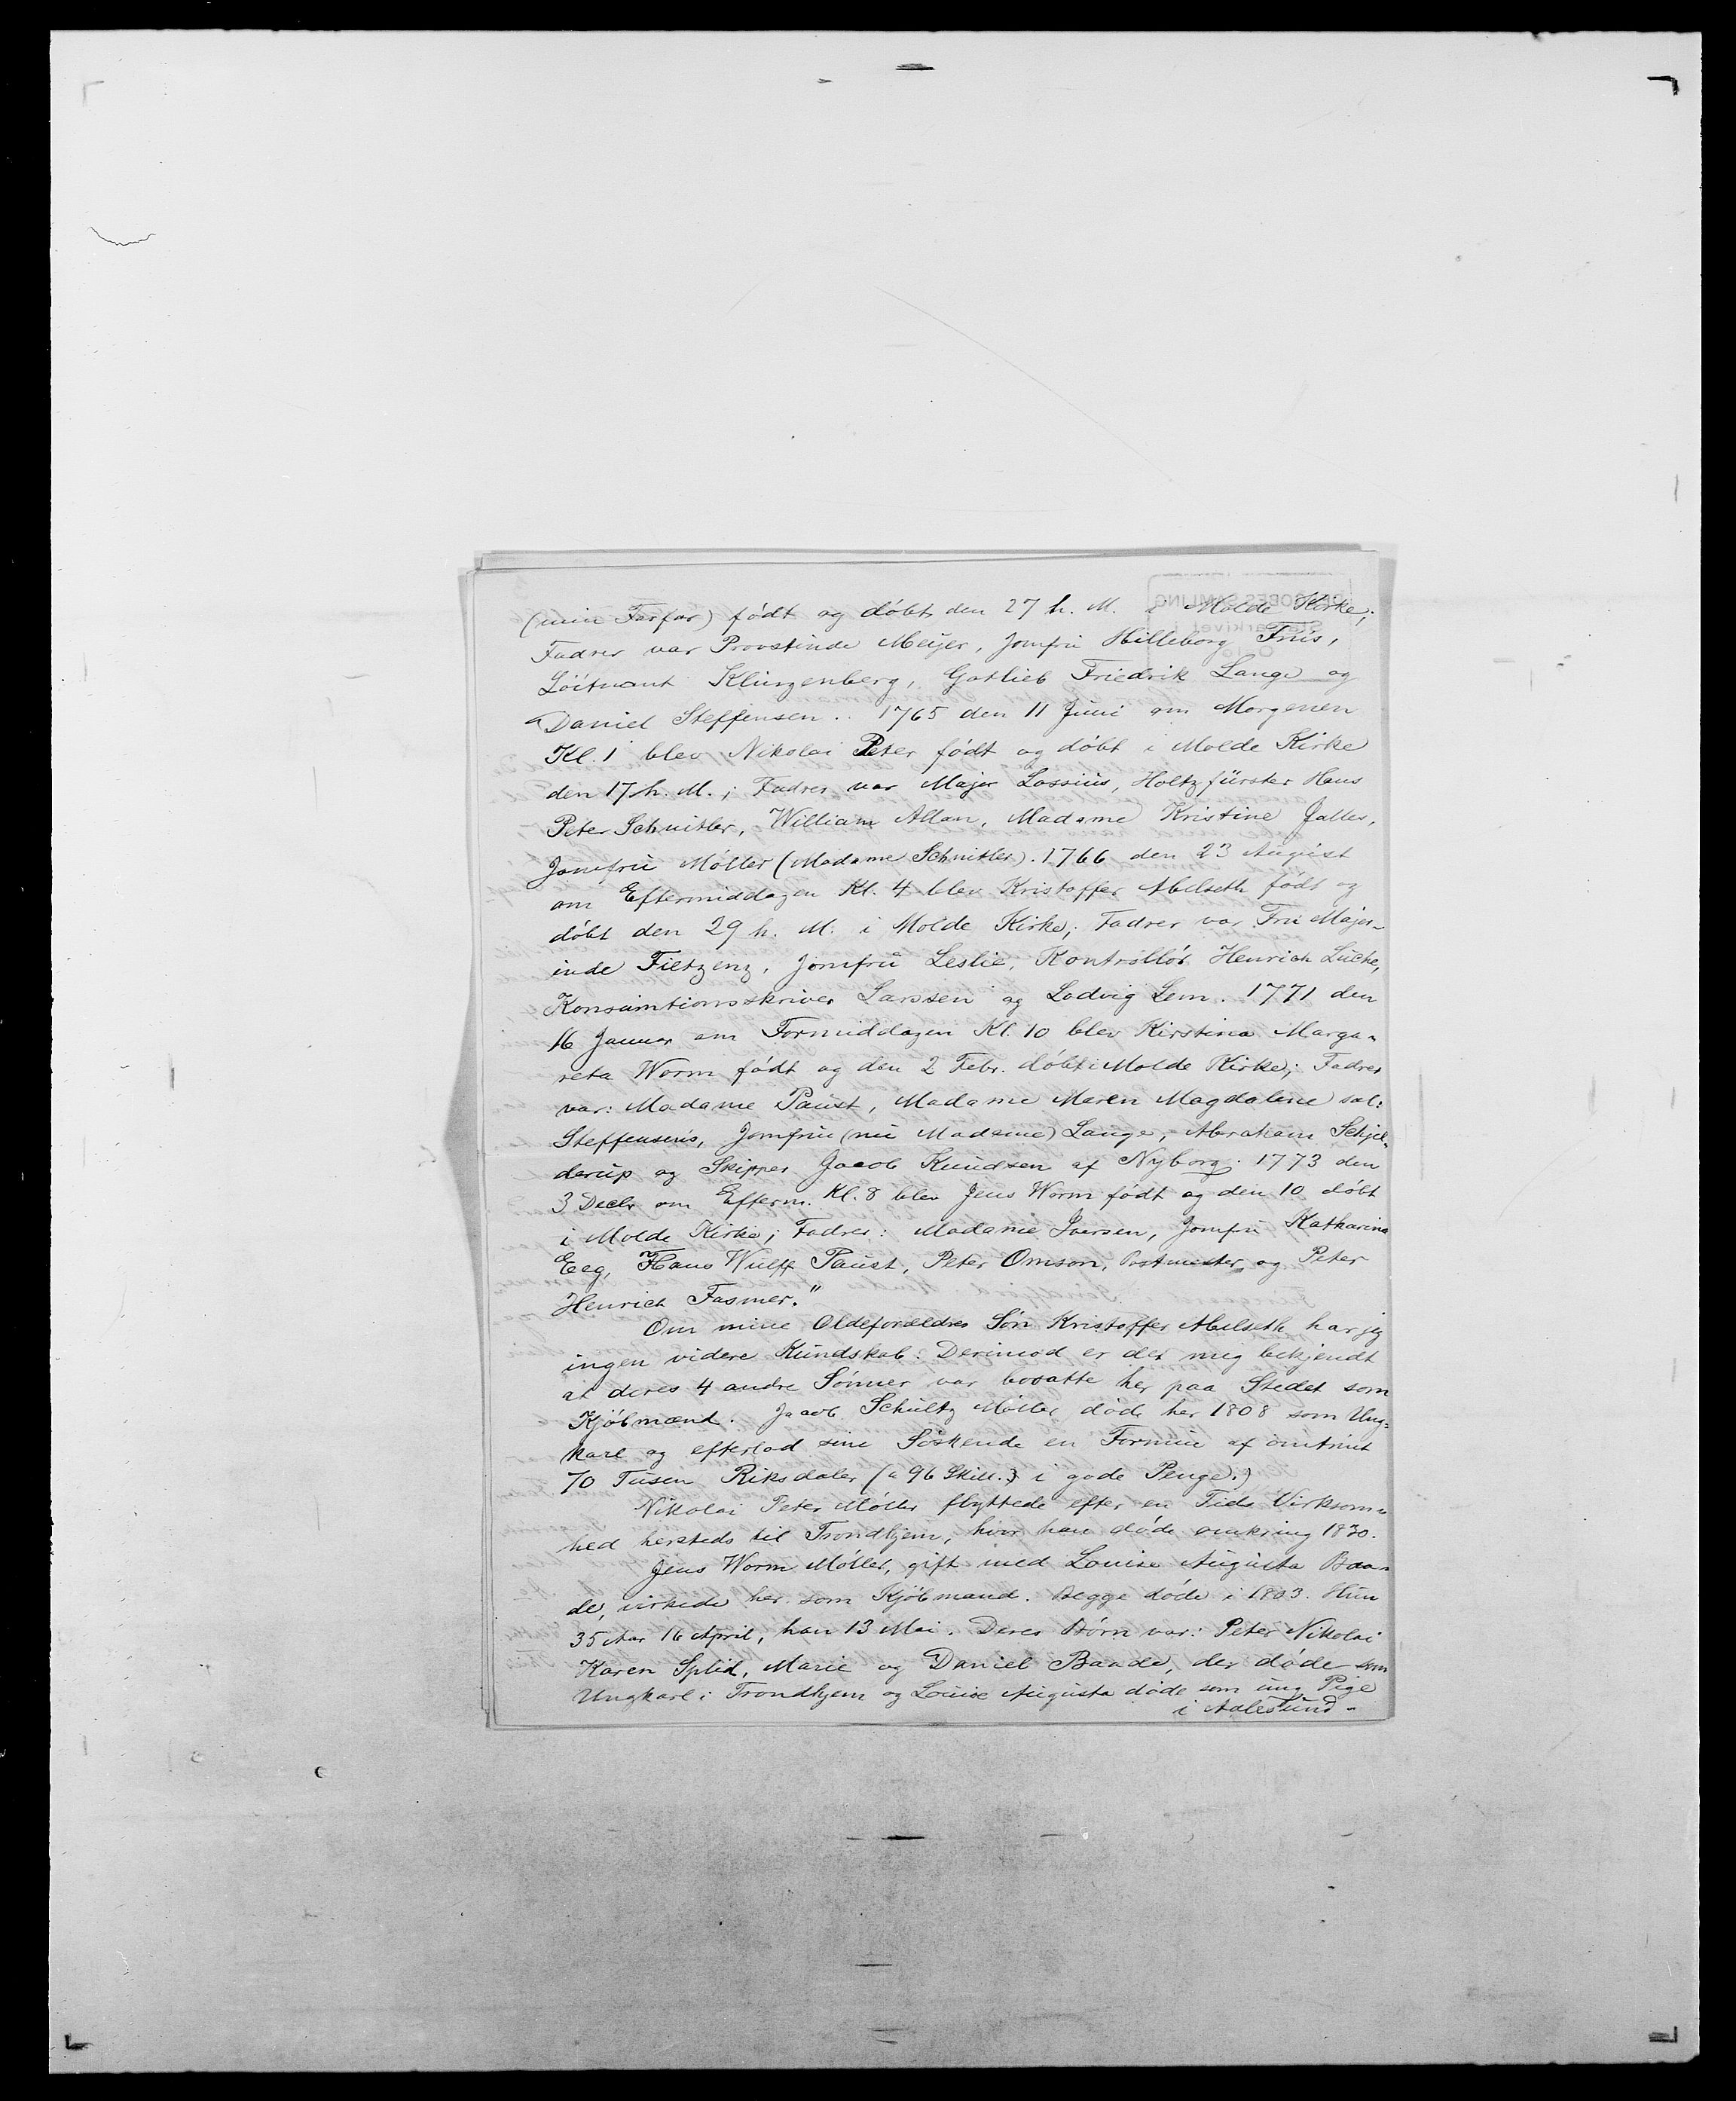 (min Farfar) født og døbt den 27 h. M. i Molde Kirke;
Fadrer var Provstinde Meyer, Jomfru Hilleborg Friis,
Løitnant Klingenberg, Gotlieb Friedrik Lange og
Daniel Steffensen. 1765 den 11 Juni om Morgenen
Kl. 1 blev Nikolai Peter født og døbt i Molde Kirke
den 17 h. M.; Fadrer var Major Lossius, Holtzfürster Hans
Peter Schnitler, William Allan, Madame Kristine
Jomfru Møller (Madame Schnitler). 1766 den 23 August
om Eftermiddagen Kl. 4 blev Kristoffer Abelseth født og
døbt den 29 h. M. i Molde Kirke; Fadrer var Fru Major-
inde Fietzenz, Jomfru Leslie, Kontrollør Henrich Lücke,
Konsumtionsskriver Larssen og Lodvig Lem. 1771 den
16 Januar om Formiddagen Kl. 10 blev Kirstina Marga-
reta Worm født og den 2 Febr. døbt i Molde Kirke; Fadrer
var: Madame Paust, Madame Maren Magdalene sal:
Steffensens, Jomfru (nu Madame) Lange, Abraham Schjel-
derup og Skipper Jacob Knudsen af Nyborg. 1773 den
3 Decbr om Efterm. Kl. 8 blev Jens Worm født og den 10 døbt
i Molde Kirke; Fadrer: Madame Iversen, Jomfru Katharina
Eeg, Hans Wulff Paust, Peter Omson, Postmester og Peter
Henrich Fasmer."
Om mine Oldeforældres Søn Kristoffer Abelseth har jeg
ingen videre Kundskab. Derimod er det mig bekjendt
at deres 4 andre Sønner var bosatte her paa Stedet som
Kjøbmænd. Jacob Schultz Møller døde her 1808 som Ung-
karl og efterlod sine Søskende en Formue af omtrint
70 Tusen Riksdaler (a 96 Skill.) i gode Penge.)
Nikolai Peter Møller flyttede efter en Tids Virksom-
hed hersteds til Trondhjem, hvor han døde omkring 1830.
Jens Worm Møller, gift med Louise Augusta Baa-
de, virkede her som Kjøbmand. Begge døde i 1803. Hun
35 Aar 16 April, han 13 Mai. Deres Børn var: Peter Nikolai
Karen Splid, Marie og Daniel Baade, der døde som
Ungkarl i Trondhjem og Louise Augusta døde som ung Pige
i Aalesund.